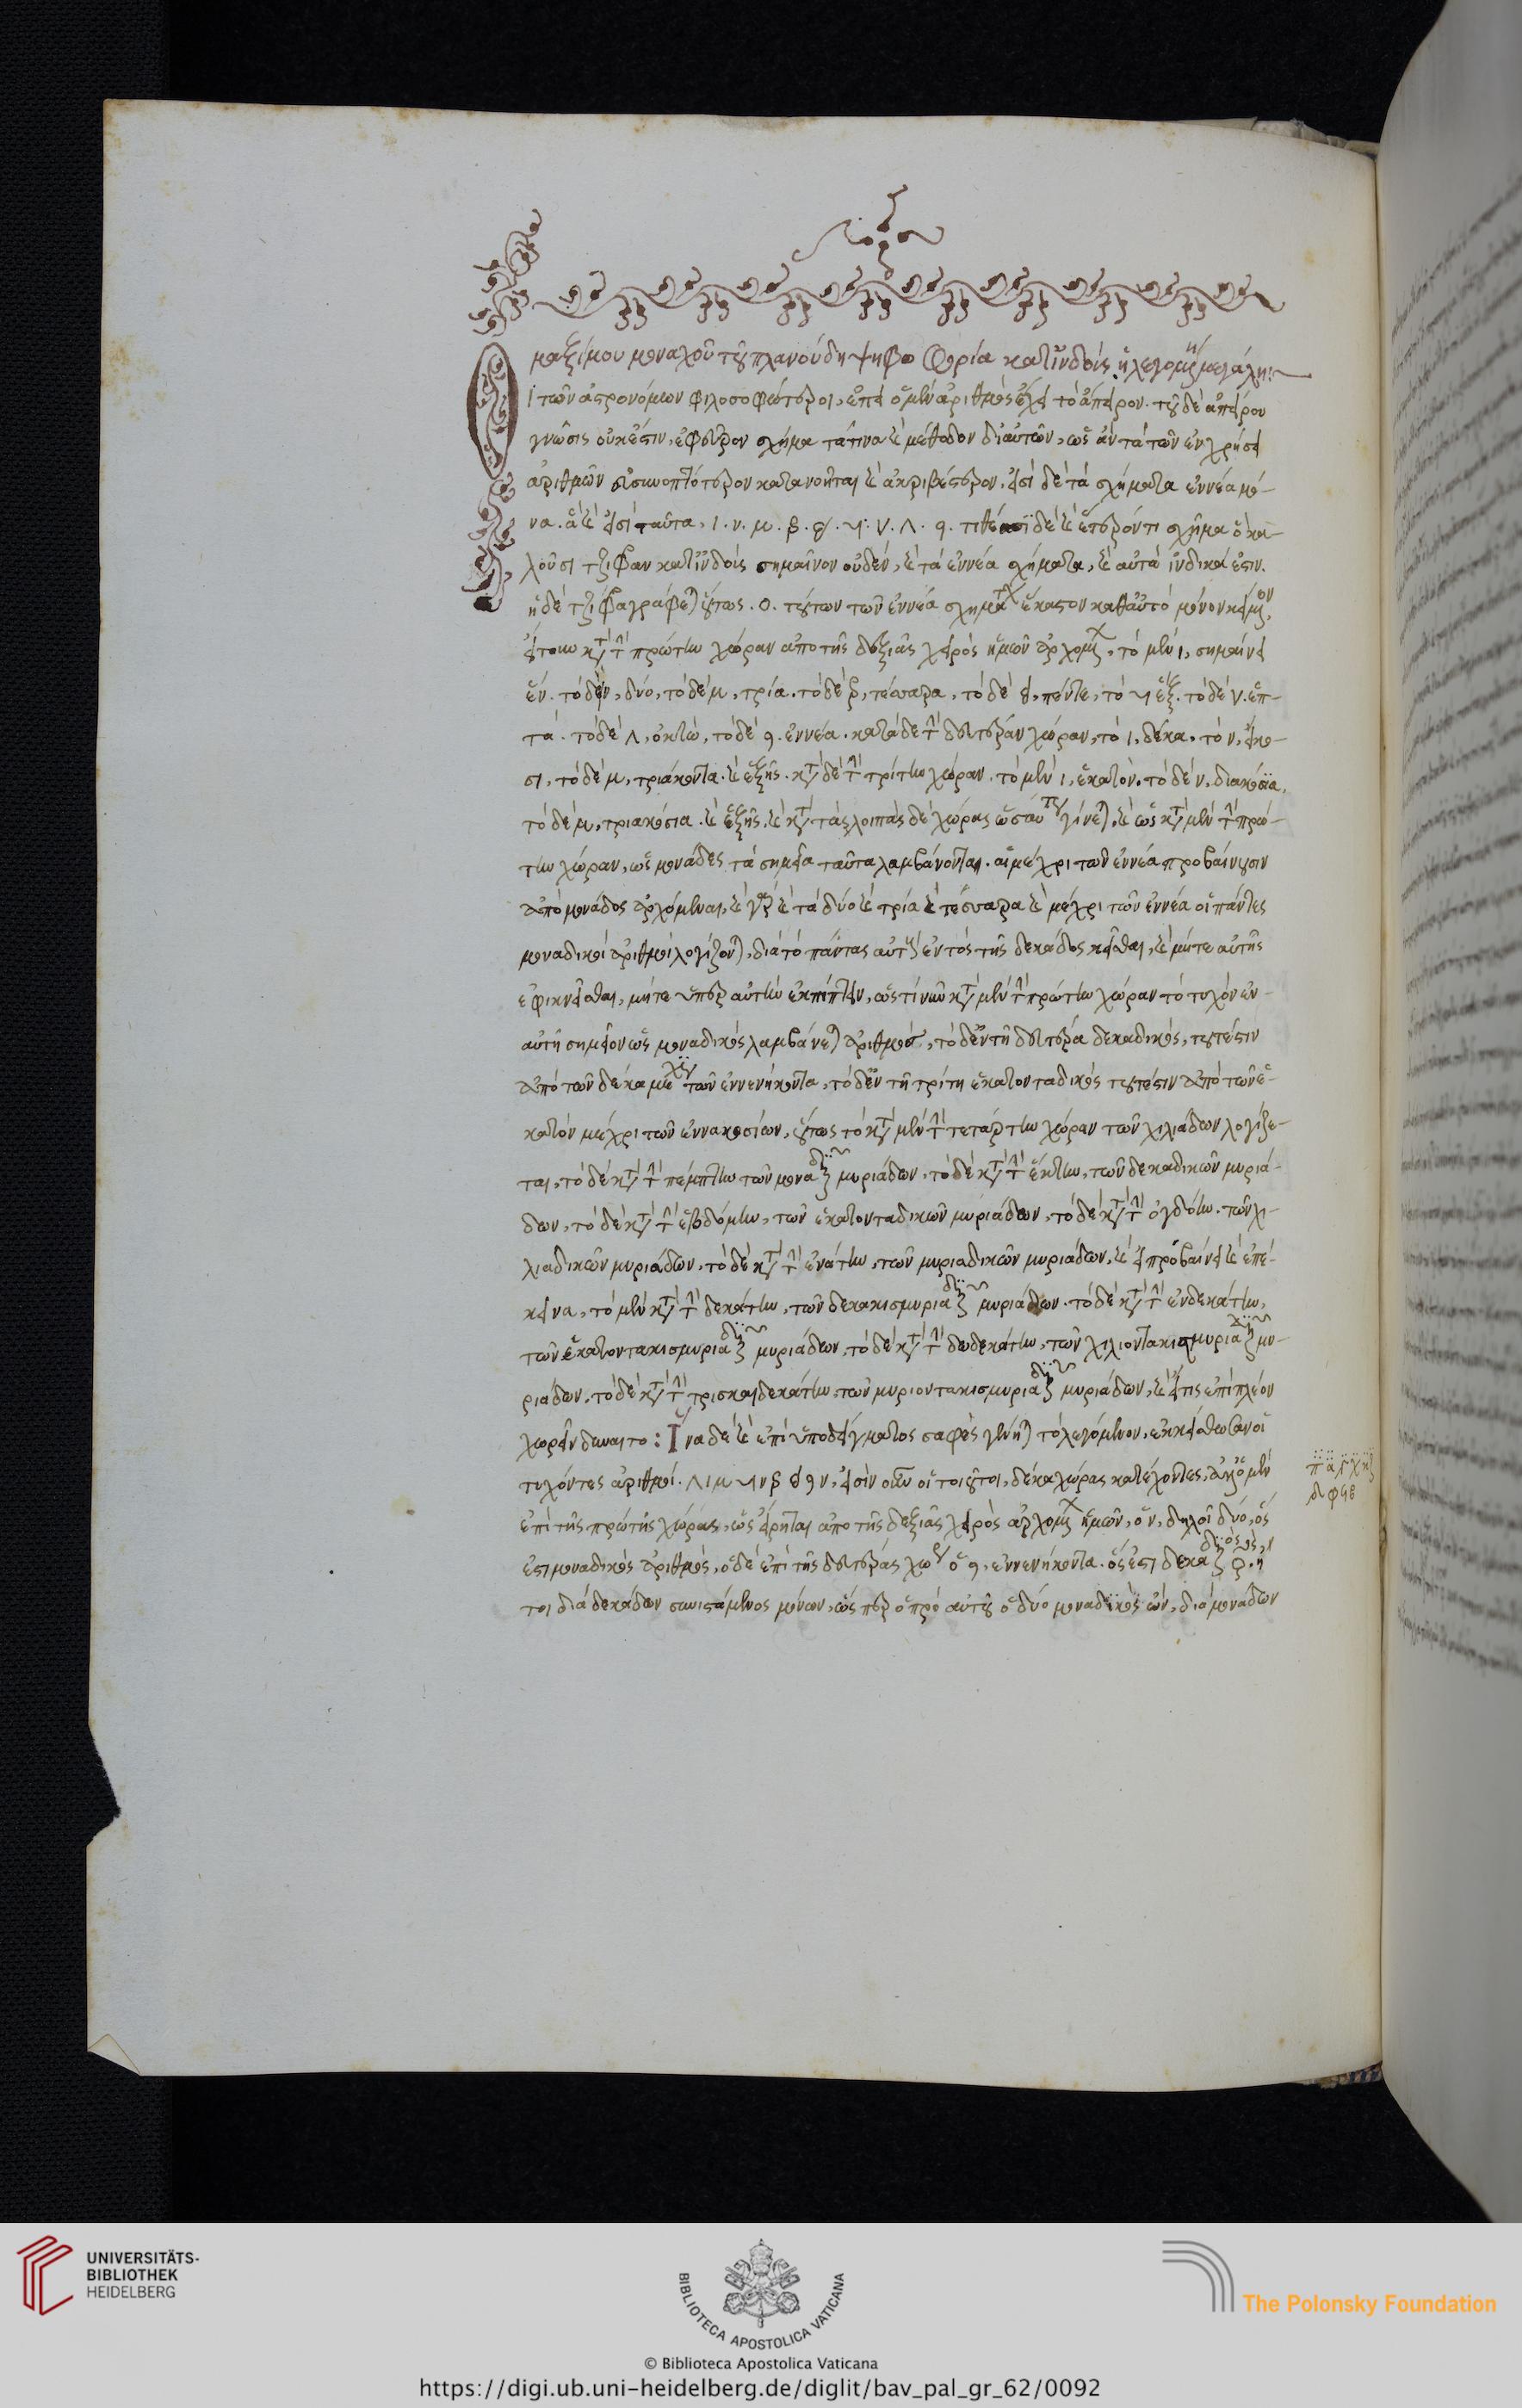 μαξίμου μοναχοῦ τοῦ πλανούδη ψηφοφορία κατ ἰνδοὺς ἡ λεγομένη μεγάλη:
Οἱ τῶν ἀστρονόμων φιλοσοφώτεροι, ἐπεὶ ὁ μὲν ἀριθμὸς ἔχει τὸ ἄπειρον. τοῦ δὲ ἀπείρου
γνῶσις οὐκ ἔστιν, ἐφεῦρον σχήματά τινα καὶ μέθοδον δι αὐτῶν, ὡς ἂν τὰ τῶν ἐν χρήσει
ἀριθμῶν εὐσυνοπτότερον κατανοῆται καὶ ἀκριβέστερον. εἰσὶ δὲ τὰ σχήματα ἐννέα μό-
να. ἃ καὶ εἰσὶ ταῦτα,
τιθέασι δὲ καὶ ἕτερόν τι σχῆμα ὃ κα-
λοῦσι τζίφραν κατ ἰνδοὺς σημαῖνον οὐδέν, καὶ τὰ ἐννέα σχήματα, καὶ αὐτὰ ἰνδικά ἐστιν.
ἡ δὲ τζίφρα γράφεται οὕτως. 0. τούτων τῶν ἐννέα σχημάτων ἕκαστον καθ αὑτὸ μόνον κείμενον,
ἤτοι κατὰ τὴν πρώτην χώραν ἀπὸ τῆς δεξιᾶς χειρὸς ἡμῶν ἀρχομένων, τὸ μὲν 1, σημαίνει
ἕν. τὸ δὲ ν, δύο, τὸ δὲ μ, τρία. τὸ δὲ β, τέσσαρα, τὸ δὲ, πέντε, τὸ ἕξ. τὸ δὲ ν. ἑπ-
τά. τὸ δὲ Λ, ὀκτώ, τὸ δὲ 9. ἐννέα. κατὰ δὲ τὴν δευτέραν χώραν, τὸ 1, δέκα, τὸ ν, εἴκο-
σι, τὸ δὲ μ, τριάκοντα. καὶ ἑξῆς. κατὰ δὲ τὴν τρίτην χώραν. τὸ μὲν 1, ἑκατόν. τὸ δὲ ν, διακόσια,
τὸ δὲ μ, τριακόσια. καὶ ἑξῆς, καὶ κατὰ τὰς λοιπὰς δὲ χώρας ὡσαύτως γίνεται, καὶ ὡς κατὰ μὲν τὴν πρώ-
την χώραν, ὡς μονάδες τὰ σημεῖα ταῦτα λαμβάνονται. αἳ μέχρι τῶν ἐννέα προβαίνουσιν
ἀπὸ μονάδος ἀρχόμεναι, καὶ γὰρ καὶ τὰ δύο καὶ τρία καὶ τέσσαρα καὶ μέχρι τῶν ἐννέα οἱ πάντες
μοναδικοὶ ἀριθμοὶ λογίζονται, διὰ τὸ πάντας αὐτοὺς ἐντὸς τῆς δεκάδος κεῖσθαι, καὶ μήτε αὐτῆς
ἐφικνεῖσθαι, μήτε ὑπὲρ αὐτὴν ἐκπίπτειν, ὥς τί νῦν κατὰ μὲν τὴν πρώτην χώραν τὸ τυχὸν ἐν
αὐτῇ σημεῖον ὡς μοναδικὸς λαμβάνεται ἀριθμός, τὸ δ ἐν τῇ δευτέρᾳ δεκαδικός, τουτέστιν
ἀπὸ τῶν δέκα μέχρι τῶν ἐννενήκοντα, τὸ δ ἐν τῇ τρίτῃ ἑκατονταδικός τουτέστιν ἀπὸ τῶν ἑ-
κατὸν μέχρι τῶν ἐννακοσίων, οὕτως τὸ κατὰ μὲν τὴν τετάρτην χώραν τῶν χιλιάδων λογίζε-
ται, τὸ δὲ κατὰ τὴν πέμπτην τῶν μοναδικῶν μυριάδων, τὸ δὲ κατὰ τὴν ἕκτην, τῶν δεκαδικῶν μυριά-
δων, τὸ δὲ κατὰ τὴν ἑβδόμην, τῶν ἑκατονταδικῶν μυριάδων, τὸ δὲ κατὰ τὴν ὀγδόην. τῶν χι-
λιαδικῶν μυριάδων, τὸ δὲ κατὰ τὴν ἐνάτην, τῶν μυριαδικῶν μυριάδων, καὶ εἰ προβαίνει καὶ ἐπέ-
κεινα, τὸ μὲν κατὰ τὴν δεκάτην, τῶν δεκακισμυριαδικῶν μυριάδων. τὸ δὲ κατὰ τὴν ἑνδεκάτην,
τῶν ἑκατοντακισμυριαδικῶν μυριάδων, τὸ δὲ κατὰ τὴν δωδεκάτην, τῶν χιλιοντακισμυριαδικῶν μυ-
ριάδων, τὸ δὲ κατὰ τὴν τρισκαιδεκάτην, τῶν μυριοντακισμυριαδικῶν μυριάδων, καὶ εἴ τις ἐπὶ πλέον
χωρεῖν δύναιτο: Ἵνα δὲ καὶ ἐπὶ ὑποδείγματος σαφὲς γένηται τὸ λεγόμενον, ἐκκείσθωσαν οἱ
τυχόντες ἀριθμοί. εἰσὶν οὖν οἱ τοιοῦτοι, δέκα χώρας κατέχοντες, ἀλλ ὁ μὲν
ἐπὶ τῆς πρώτης χώρας, ὡς εἴρηται ἀπὸ τῆς δεξιᾶς χειρὸς ἀρχομένων ἡμῶν, ὁ ν, δηλοῖ δύο, ὅς
ἐστι μοναδικὸς ἀριθμός, ὁ δὲ ἐπὶ τῆς δευτέρας χώρας ὁ 9, ἐννενήκοντα. ὅς ἐστι δεκαδικὸς ἀριθμός. ἤ-
τοι διὰ δεκάδων συνιστάμενος μόνων, ὥσπερ ὁ πρὸ αὐτοῦ ὁ δύο μοναδικὸς ὤν, διὰ μονάδων
UNIVERSITÄTS-
BIBLIOTHEK
HEIDELBERG
BIBLIOTECA APOSTOLICA VATICANA
The Polonsky Foundation
© Biblioteca Apostolica Vaticana
https://digi.ub.uni-heidelberg.de/diglit/bav_pal_gr_62/0092